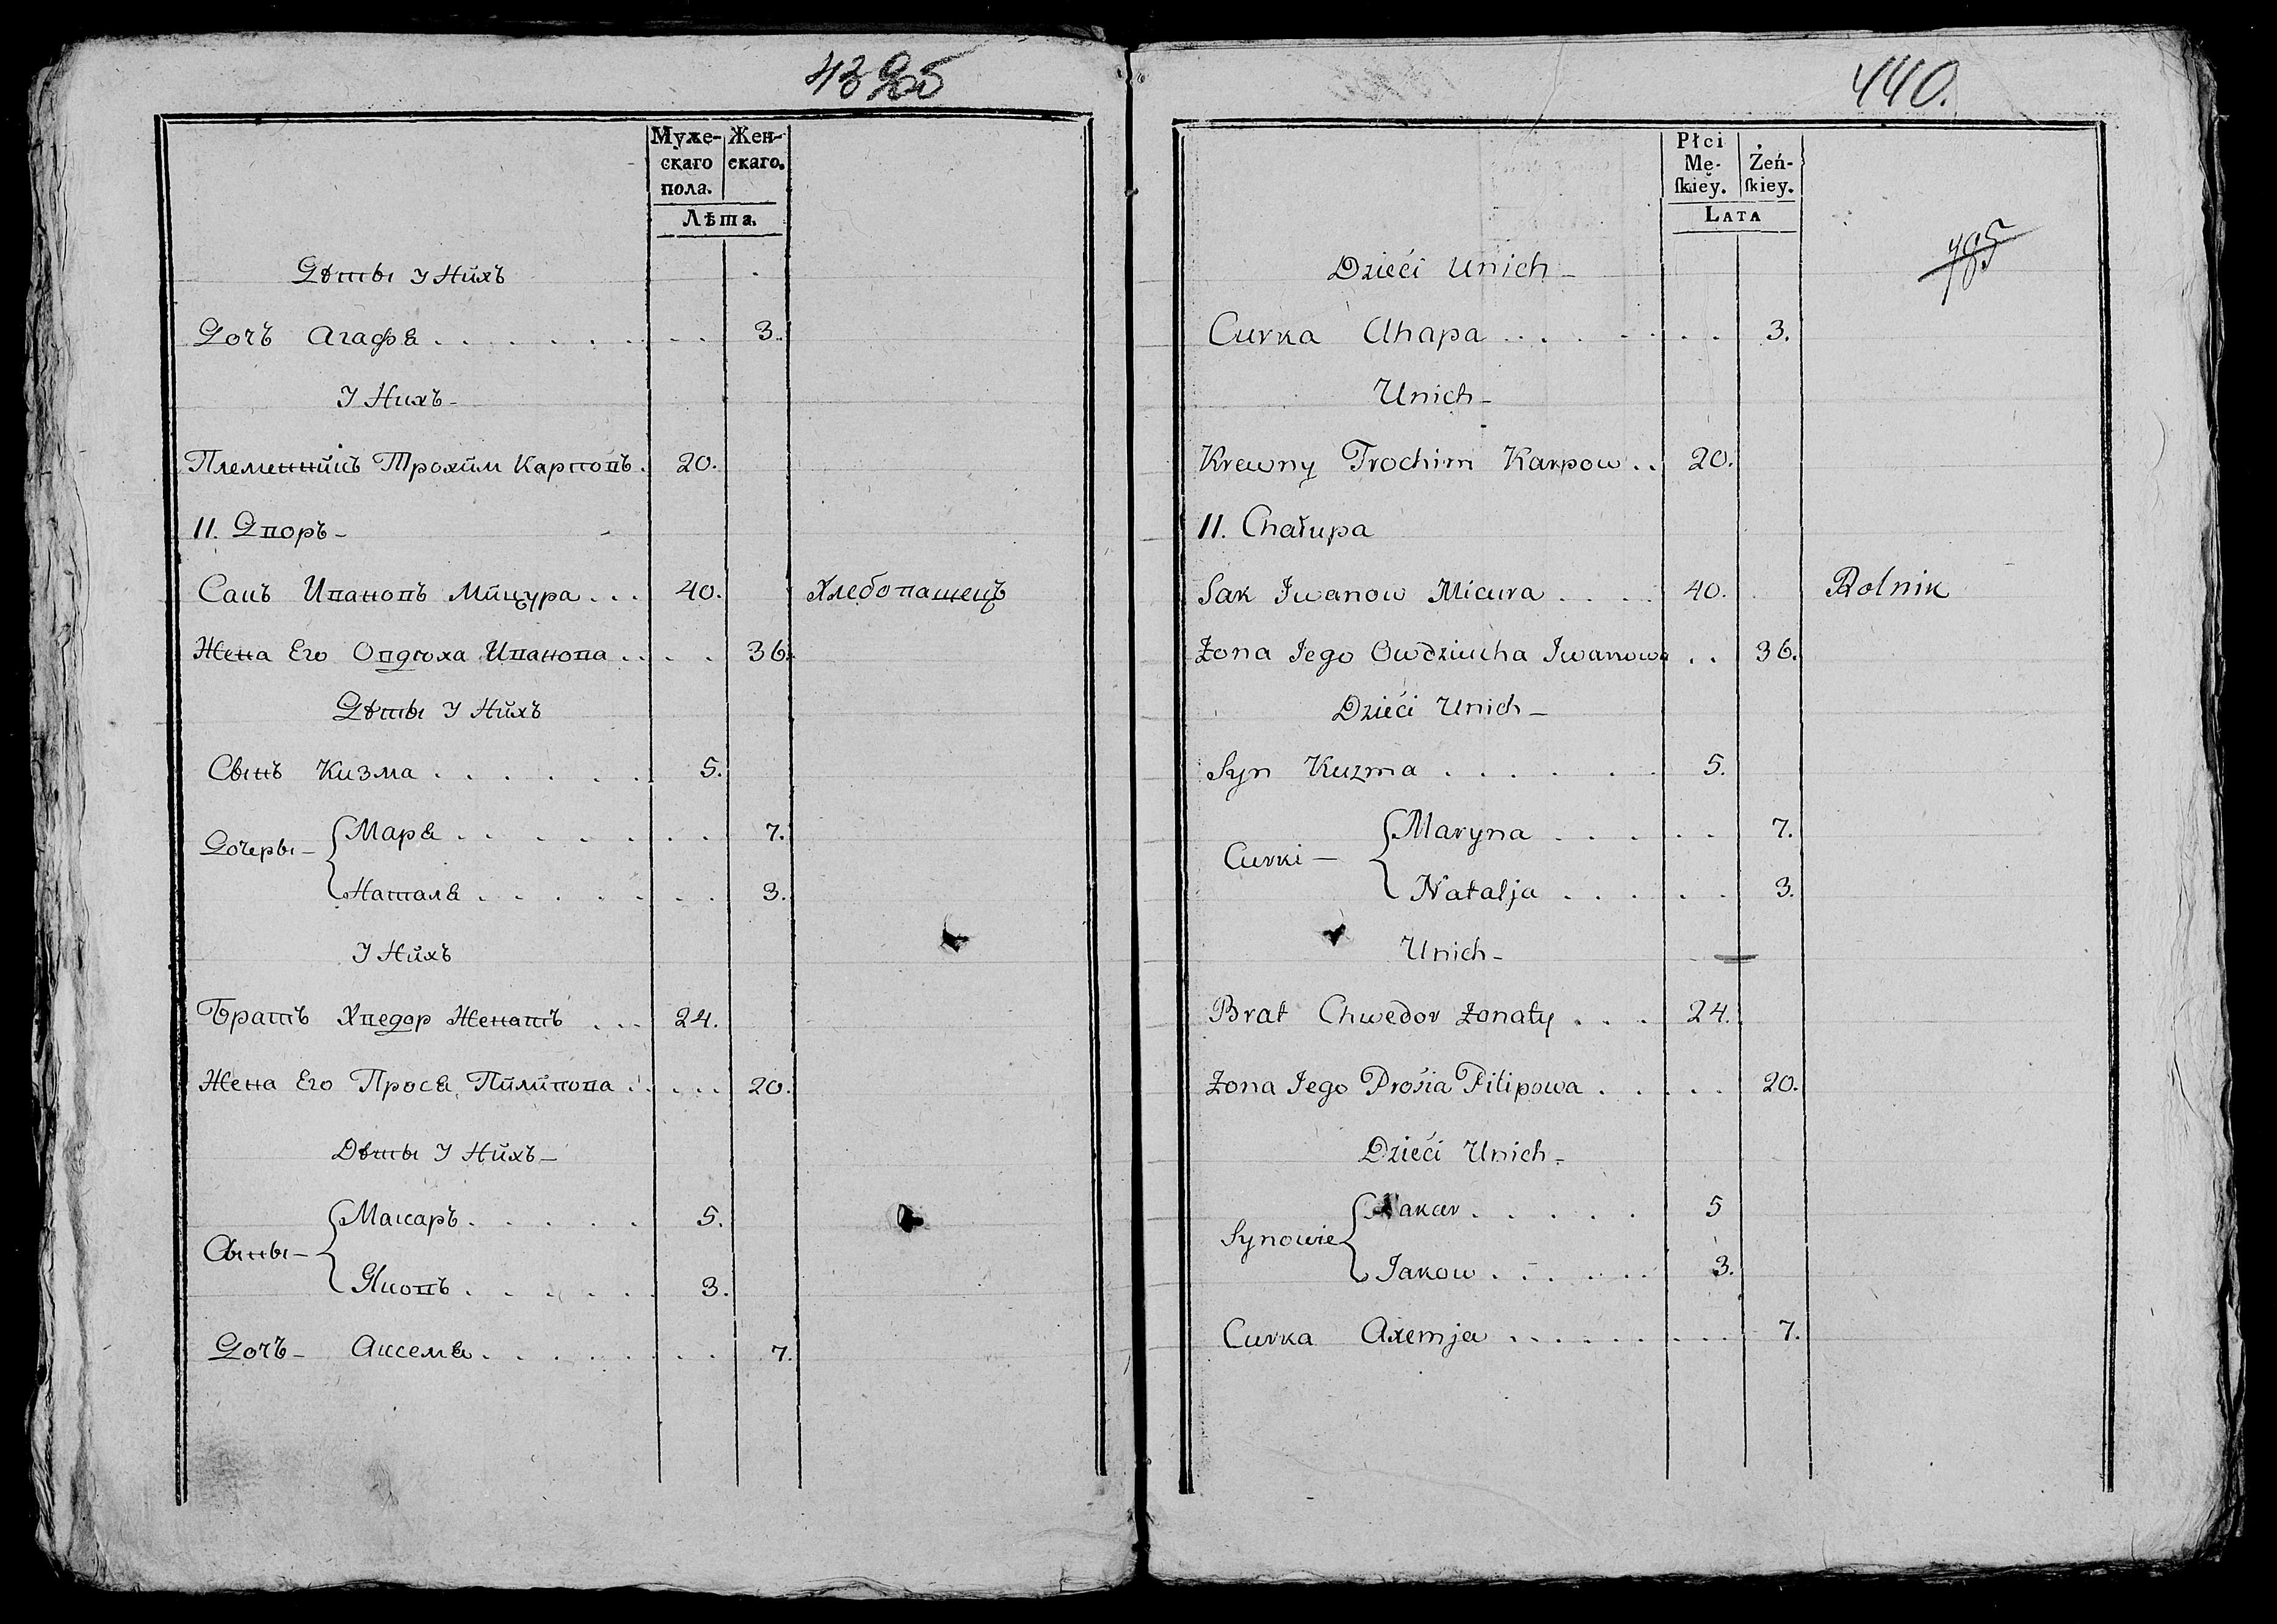 Муже-
скаго
пола.
Жен-
скаго.
Лѣта.
Дѣты У Нихъ
Дочъ Агафѣ 3.
У Нихъ
Племенникъ Трохим Карповъ 20.
11. Дворъ
Сакъ Ивановъ Мицура 40. Хлебопашецъ
Жена Его Овдюха Иванова 36.
Дѣты У Нихъ
Сынъ Кизма 5.
Дочеры
Марѣ 7.
Наталѣ 3.
У Нихъ
Братъ Хведор Женатъ 24.
Жена Его Просѣ Пилипова 20.
Дѣты У Нихъ
Сыны
Макаръ 5.
Яковъ 3.
Дочъ Аксемѣ 7.
440.
Płci
Mę-
skiey.
Żeń-
skiey.
LATA
Dzieći Unich
Curka Ahapa 3.
Unich
Krewny Trochim Karpow 20.
11. Chałupa
Sak Iwanow Micura 40. Rolnik
Żona Iego Owdziucha Iwanowa 36.
Dzieći Unich
Syn Kuzma 5.
Curki
Maryna 7.
Natalja 3.
Unich
Brat Chwedor żonaty 24.
Żona Iego Prosia Filipowa 20.
Dzieći Unich
Synowie
Makar 5
Iakow 3.
Curka Axemja 7.